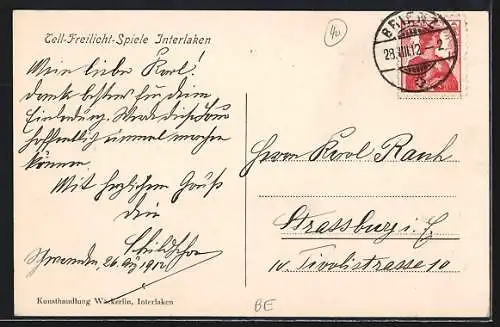 Tell-Freilicht-Spiele Interlaken
40
BRIENZ
28.VIII.12–2
Mein lieber Karl!
danke bestens für deine
Einladung. Werde dich
hoffentlich einmal machen
können.
Mit herzlichem Gruß
dein
Schwanden, 26. Aug 1912
Herrn Karl Rauh
Strassburg i. E.
10. Tivolistrasse 10
Kunsthandlung Wäckerlin, Interlaken
BE